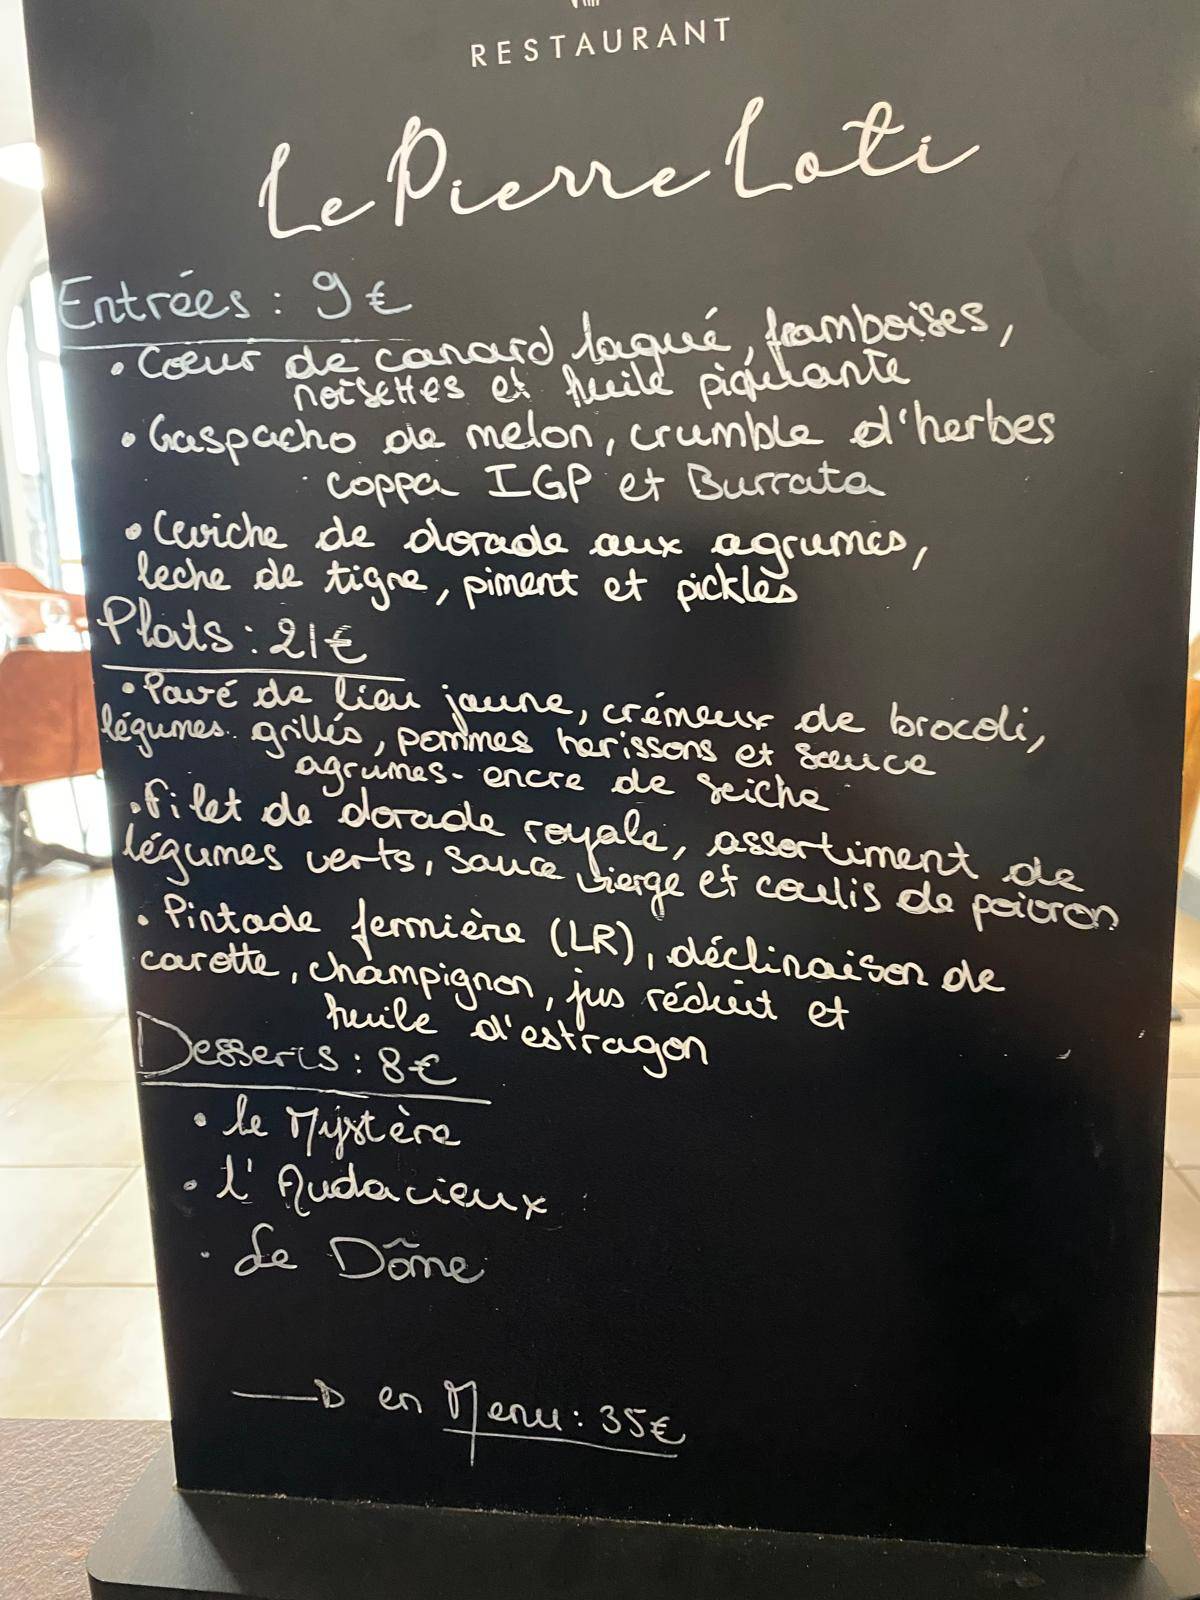 RESTAURANT
Le Pierre Loti
Entrées : 9 €
• Cœur de canard laqué, framboises,
noisettes et huile piquante
• Gaspacho de melon, crumble d'herbes
coppa IGP et Burrata
• Ceviche de dorade aux agrumes,
leche de tigre, piment et pickles
Plats : 21€
• Pavé de lieu jaune, crémeux de brocoli,
légumes grillés, pommes herissons et sauce
agrumes - encre de seiche
• Filet de dorade royale, assortiment de
légumes verts, sauce vierge et coulis de poivron
• Pintade fermière (LR), déclinaison de
carotte, champignon, jus réduit et
huile d'estragon
Desserts : 8€
• le Mystère
• l'Audacieux
• Le Dôme
→ en Menu : 35€